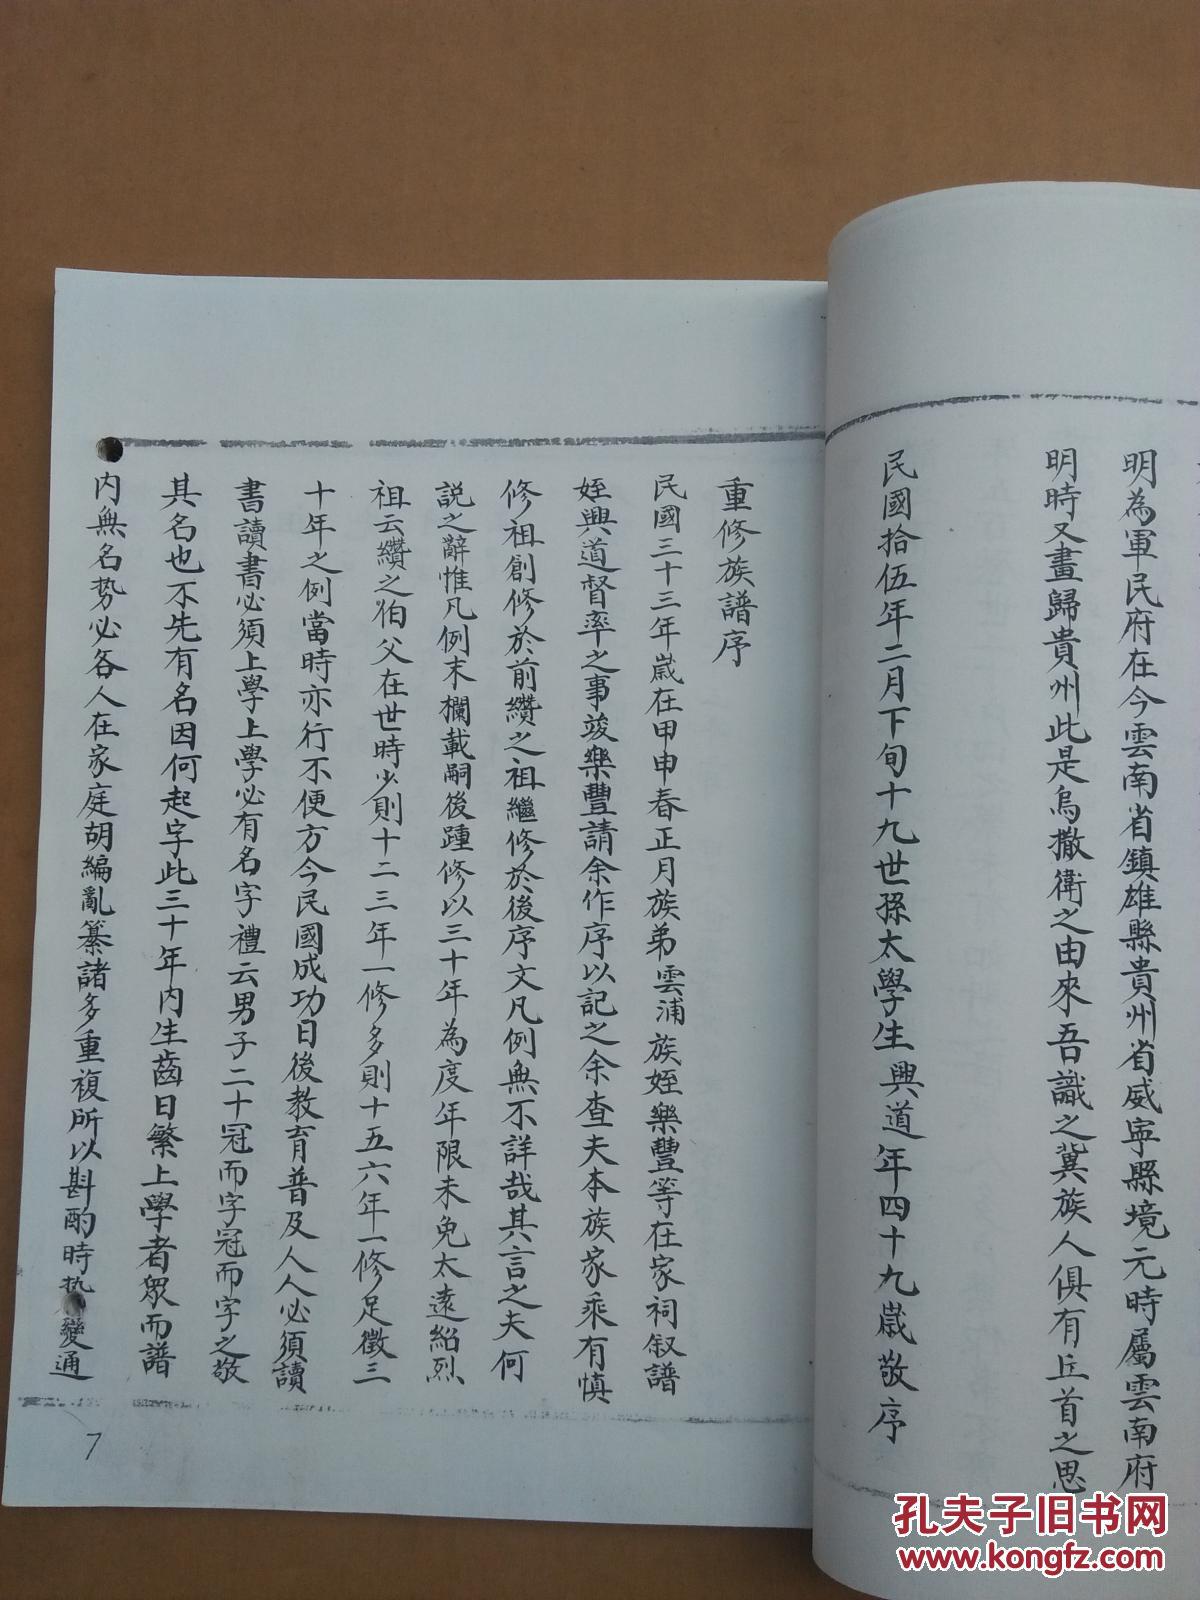 明為軍民府在今雲南省鎮雄縣貴州省威寧縣境元時屬雲南府
明時又畫歸貴州此是烏撒衛之由來吾識之冀族人俱有丘首之思
民國拾伍年二月下旬十九世孫太學生興道年四十九歲敬序
重修族譜序
民國三十三年歲在甲申春正月族弟雲浦族姪樂豐等在家祠叙譜
姪興道督率之事竣樂豐請余作序以記之余查夫本族家乘有慎
修祖創修於前纘之祖繼修於後序文凡例無不詳哉其言之夫何
説之辭惟凡例末欄載嗣後踵修以三十年為度年限未免太遠紹烈
祖云纘之伯父在世時少則十二三年一修多則十五六年一修足徵三
十年之例當時亦行不便方今民國成功日後教育普及人人必須讀
書讀書必須上學上學必有名字禮云男子二十冠而字冠而字之敬
其名也不先有名因何起字此三十年内生齒日繁上學者眾而譜
内無名势必各人在家庭胡編亂纂諸多重複所以斟酌時势變通
7
孔夫子旧书网
www.kongfz.com